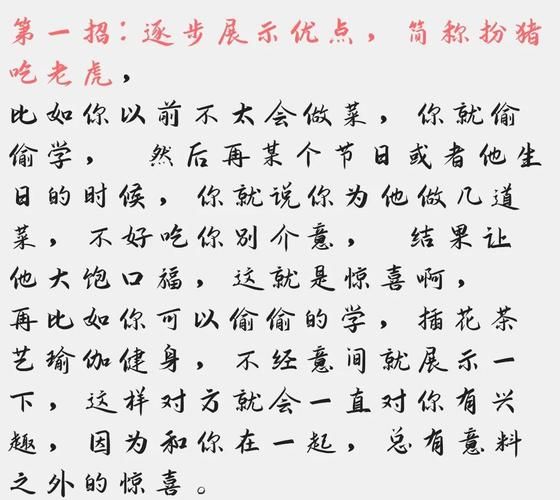 第一招：逐步展示优点，简称扮猪
吃老虎，
比如你以前不太会做菜，你就偷
偷学， 然后再某个节日或者他生
日的时候，你就说你为他做几道
菜，不好吃你别介意， 结果让
他大饱口福，这就是惊喜啊，
再比如你可以偷偷的学，插花茶
艺瑜伽健身，不经意间就展示一
下，这样对方就会一直对你有兴
趣，因为和你在一起，总有意料
之外的惊喜。